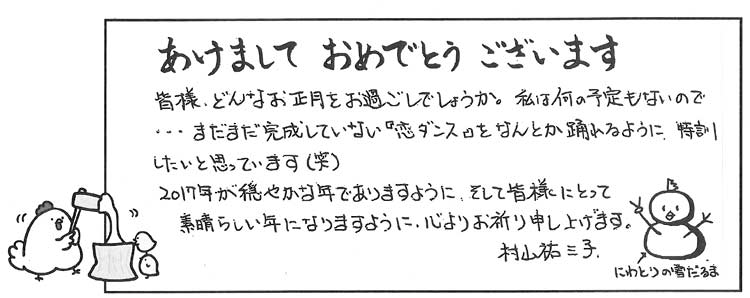 あけまして おめでとう ございます
皆様、どんなお正月をお過ごしでしょうか。私は何の予定もないので
・・・まだまだ完成していない『恋ダンス』をなんとか踊れるように、特訓
したいと思っています(笑)
2017年が穏やかな年でありますように、そして皆様にとって
素晴らしい年になりますように、心よりお祈り申し上げます。
村山祐三子
にわとりの雪だるま